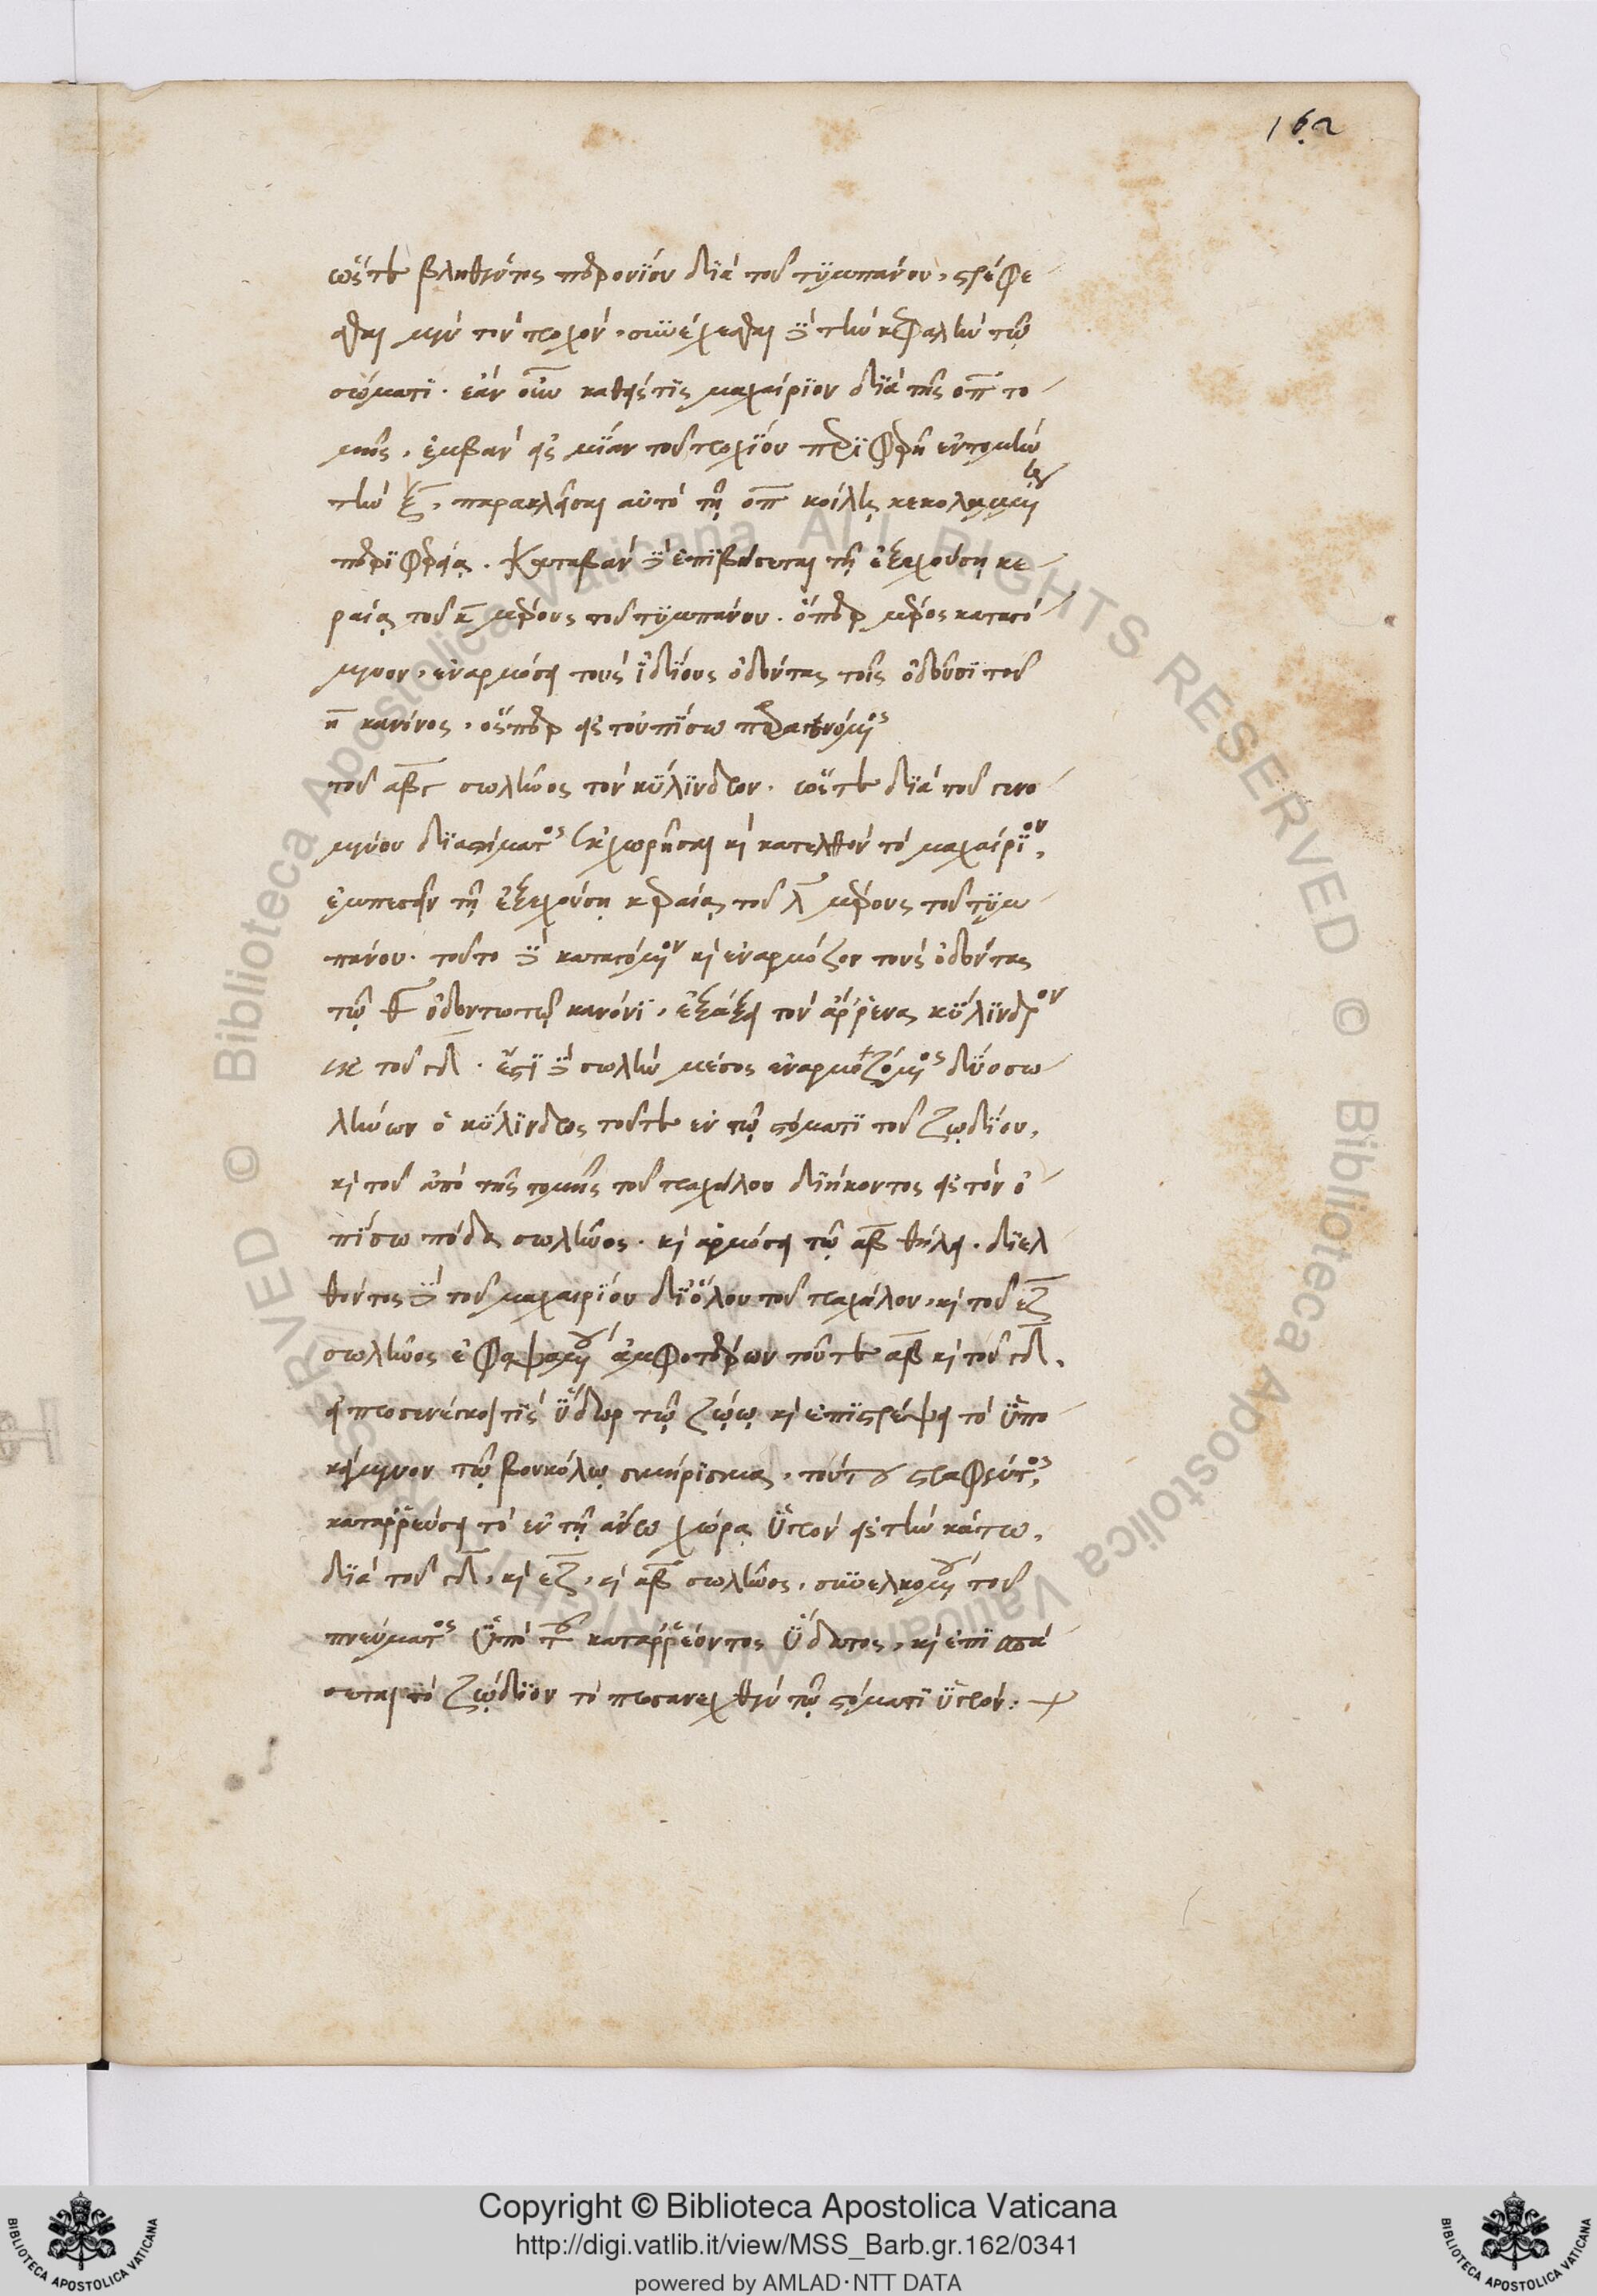 162
ὥστε βληθέντος περονίου διὰ τοῦ τυμπάνου, στρέφε
σθαι μὲν τὸν τροχόν, συνέχεσθαι δὲ τὴν κεφαλὴν τῷ
σώματι. ἐὰν οὖν καθῇ τις μαχαίριον διὰ τῆς οπ το
μῆς, ἐμβὰν εἰς μίαν τοῦ τροχίου περιφερῆ ἐντομὴν
τὴν ξ, παρακλεῖσαι αὐτὸ τῇ οπ κοίλῃ
περιφερείᾳ. καταβὰν δὲ ἐπιβήσεται τῇ ἐξεχούσῃ κε
ραίᾳ τοῦ κ μέρους τοῦ τυμπάνου. ὅπερ μέρος κατατό
μενον, ἐναρμόσει τοὺς ἰδίους ὀδόντας τοῖς ὀδοῦσι τοῦ
η κανόνος, ὅσπερ εἰς τοὐπίσω
τοῦ αβς σωλῆνος τὸν κύλινδρον. ὥστε διὰ τοῦ γενο
μένου διαστήματος ἐκχωρῆσαι καὶ κατελθὸν τὸ μαχαίριον,
ἐμπεσεῖν τῇ ἐξεχούσῃ κεραίᾳ τοῦ λ μέρους τοῦ τυμ
πάνου. τοῦτο δὲ κατατόμενον καὶ ἐναρμόζον τοὺς ὀδόντας
τῷ θ ὀδοντωτῷ κανόνι, ἐξάξει τὸν ἄρρενας κύλινδρον
ἐκ τοῦ γδ. ἔστι δὲ σωλὴν μέσος ἐναρμοζόμενος δύο σω
λήνων ὁ κύλινδρος τοῦτε ἐν τῷ στόματι τοῦ ζωδίου,
καὶ τοῦ ἀπὸ τῆς τομῆς τοῦ τραχήλου διήκοντος εἰς τὸν ὀ
πίσω πόδα σωλῆνος. καὶ ἁρμόσει τῷ αβ θήλει. διελ
θόντος δὲ τοῦ μαχαιρίου δι' ὅλου τοῦ τραχήλου, καὶ τοῦ εζ
σωλῆνος ἐφαψαμένου ἀμφοτέρων τοῦτε αβ καὶ τοῦ γδ,
εἰ προσενέγκοι τις ὕδωρ τῷ ζώῳ καὶ ἐπιστρέψει τὸ ὑπο
κείμενον τῷ βουκόλῳ σμήρισμα, τούτου στραφέντος,
καταρρεύσει τὸ ἐν τῇ ἄνω χώρᾳ ὑγρὸν εἰς τὴν κάτω,
διὰ τοῦ γδ, καὶ εζ, καὶ αβ σωλῆνος, συνελκομένου τοῦ
πνεύματος ὑπὸ τοῦ καταρρέοντος ὕδατος, καὶ ἐπισπά
σεται τὸ ζώδιον τὸ προσανεχθὲν τῷ στόματι ὑγρόν:
© Biblioteca Apostolica Vaticana ALL RIGHTS RESERVED © Biblioteca Apostolica Vaticana ALL RIGHTS RESERVED
Copyright © Biblioteca Apostolica Vaticana
http://digi.vatlib.it/view/MSS_Barb.gr.162/0341
powered by AMLAD·NTT DATA
BIBLIOTECA APOSTOLICA VATICANA
BIBLIOTECA APOSTOLICA VATICANA